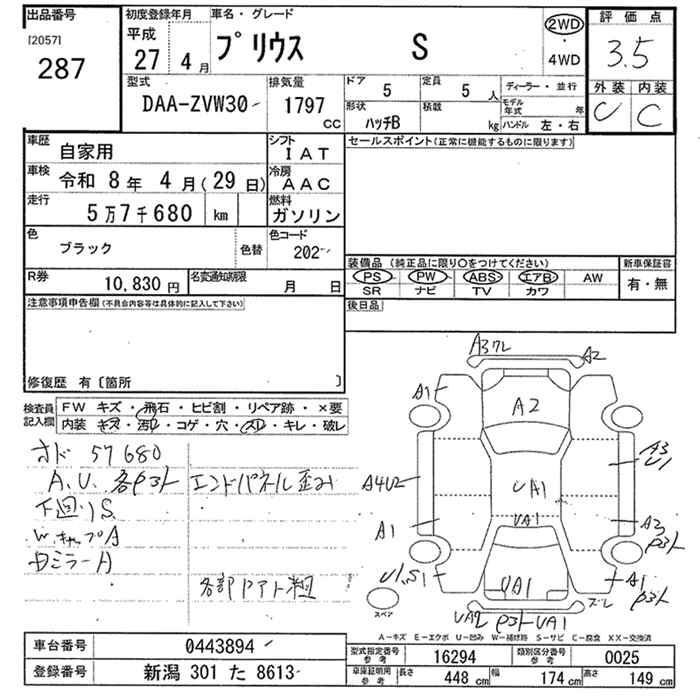 出品番号
[2057]
287
初度登録年月
平成
27 4月
車名・グレード
プリウス S
2WD
・
4WD
評価点
3.5
外装 内装
C
型式
DAA-ZVW30
排気量
1797
CC
ドア
5
定員
5人
形状
ハッチB
積載
kg
ディーラー・並行
モデル年式 年
ハンドル 左・右
車歴
自家用
シフト
IAT
車検
令和 8年 4月(29日)
冷房
AAC
走行
5万7千680 km
燃料
ガソリン
色
ブラック
色替
色コード
202
R券
10,830円
名変通知期限
月 日
セールスポイント(正常に機能するものに限ります)
装備品(純正品に限り○をつけてください)
PS PW ABS エアB AW
SR ナビ TV カワ
新車保証書
有・無
後日品
注意事項申告欄(不具合内容等は具体的に記入して下さい)
修復歴 有〔箇所 〕
検査員
記入欄
FW キズ・飛石・ヒビ割・リペア跡・×要
内装 キズ・汚れ・コゲ・穴・スレ・キレ・破レ
オド 57680
A.U. 各P3ト エンドパネル歪み
下回りS
W.キャップA
Dミラー A
各部
A3ワレ A2
A1
A2
A3
U1
A4U2
UA1
UA1
A1
A3
P3ト
U1.S1
UA1
A1
P3ト
ズレ
UA2 P3ト UA1
スペア
A-キズ E-エクボ U-凹み W-補修跡 S-サビ C-腐食 XX-交換済
車台番号
0443894
登録番号
新潟 301 た 8613
型式指定番号
参考
16294
類別区分番号
参考
0025
車庫証明用
参考
長さ 448cm 幅 174cm 高さ 149cm